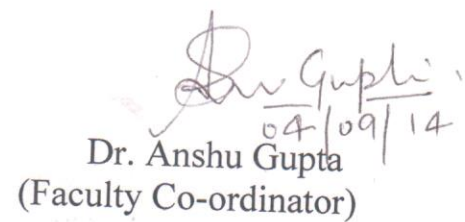 Gupta
04/09/14
Dr. Anshu Gupta
(Faculty Co-ordinator)